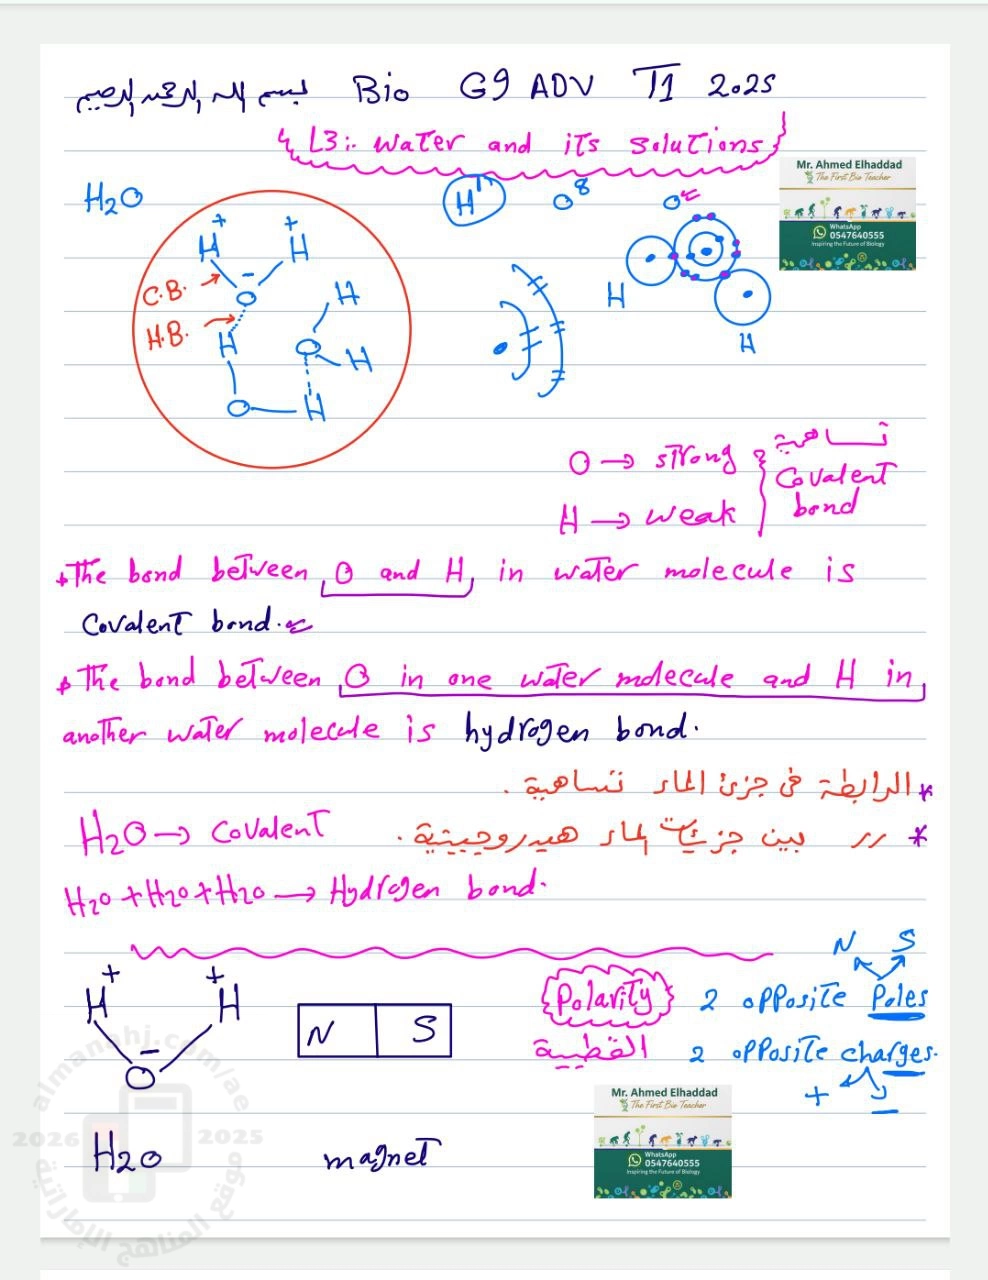 بسم الله الرحمن الرحيم Bio G9 ADV T1 2025
L3:- Water and its solutions
Mr. Ahmed Elhaddad
The First Bio Teacher
WhatsApp
0547640555
Inspiring the Future of Biology
H2O
H+ H+
C.B. O-
H.B.
H
O H
H
O H
H1 O8 O
H
H
O → strong
H → weak
تساهمية
Covalent
bond
The bond between O and H, in water molecule is
Covalent bond.
The bond between O in one water molecule and H in
another water molecule is hydrogen bond.
* الرابطة في جزئ الماء تساهمية .
* // بين جزيئات الماء هيدروجينية .
H2O → Covalent
H2O + H2O + H2O → Hydrogen bond.
N S
H+ H+
O-
N S
Polarity 2 opposite Poles
القطبية 2 opposite charges.
+ -
H2O magnet
Mr. Ahmed Elhaddad
The First Bio Teacher
WhatsApp
0547640555
Inspiring the Future of Biology
almanahj.com/ae
2026 2025
موقع المناهج الإماراتية